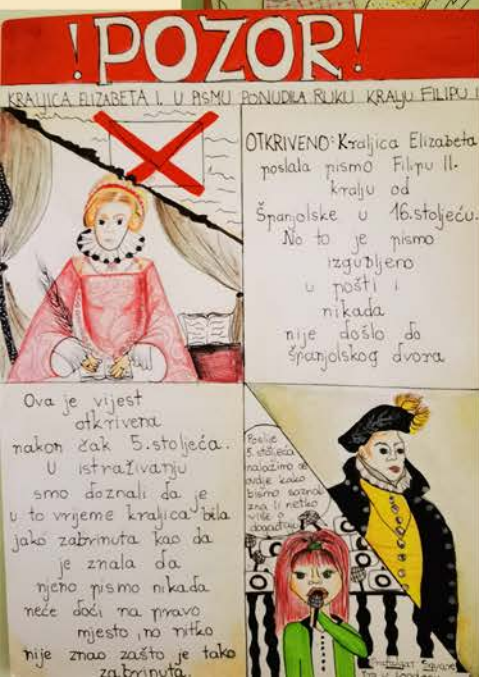 ! POZOR!
KRALJICA ELIZABETA I. U PISMU PONUDILA RUKU KRALJU FILIPU I
OTKRIVENO: Kraljica Elizabeta
poslala pismo Filipu II.
kralju od
Španjolske u 16.stoljeću.
No to je pismo
izgubljeno
u pošti i
nikada
nije došlo do
španjolskog dvora
Ova je vijest
otkrivena
nakon čak 5.stoljeća.
U istraživanju
smo doznali da je
u to vrijeme kraljica bila
jako zabrinuta kao da
je znala da
njeno pismo nikada
neće doći na pravo
mjesto, no nitko
nije znao zašto je tako
zabrinuta.
Poslije
5. stoljeća
nalazimo se
ovdje kako
bismo saznali
zna li netko
više o
događaju
Trafalgar Square